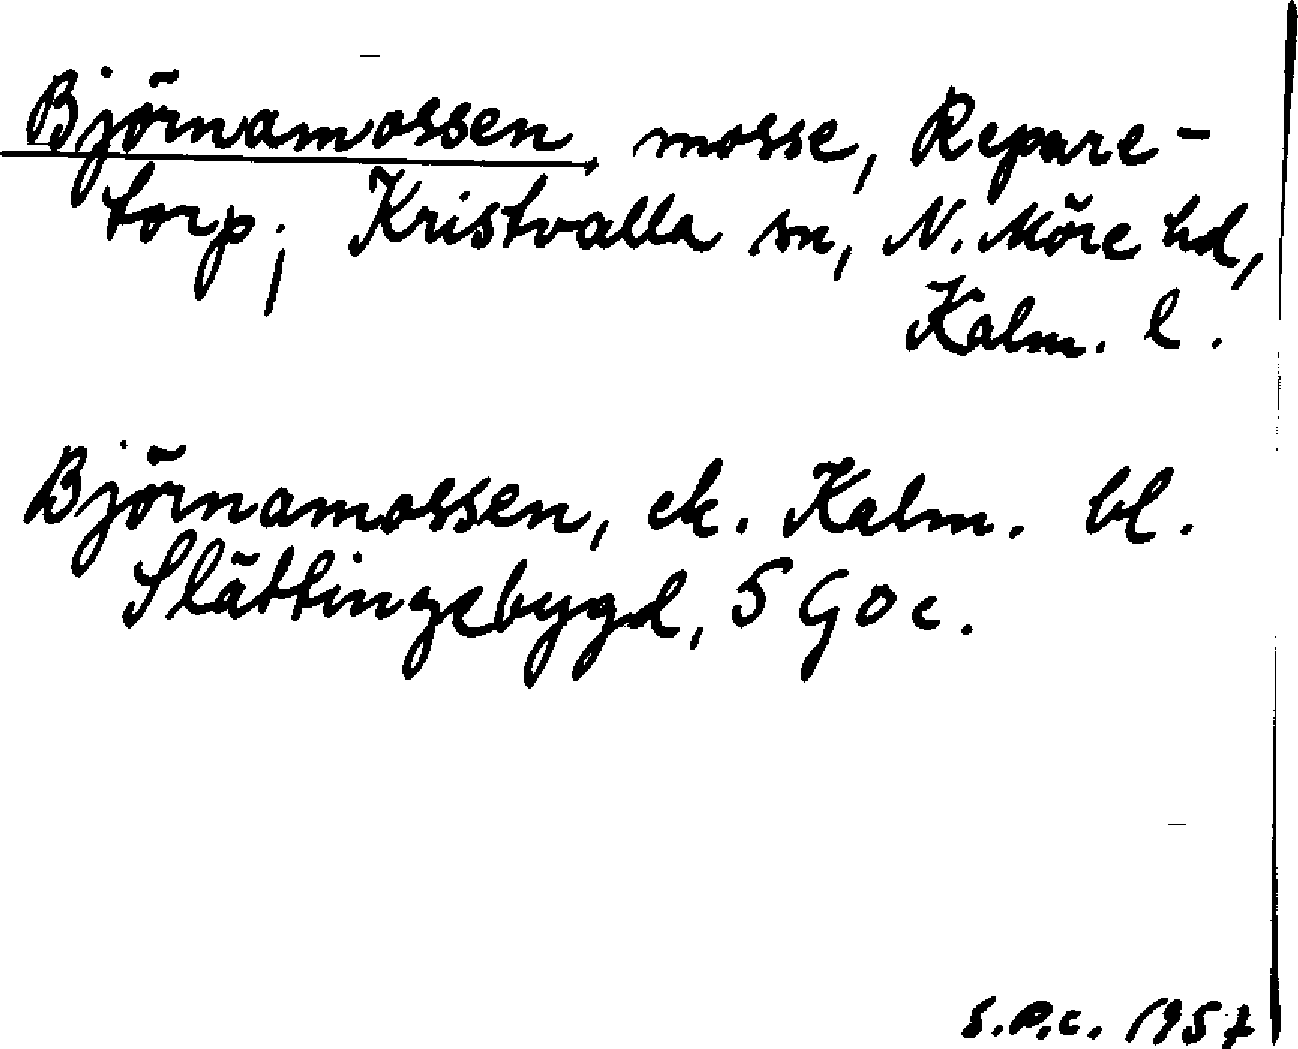 Björnamossen, mosse, Repare-
torp; Kristvalla sn, N. Möre hd,
Kalm. l.
Björnamossen, ek. Kalm. bl.
Slättingebygd, 5 G o c.
S.P.C. 1957